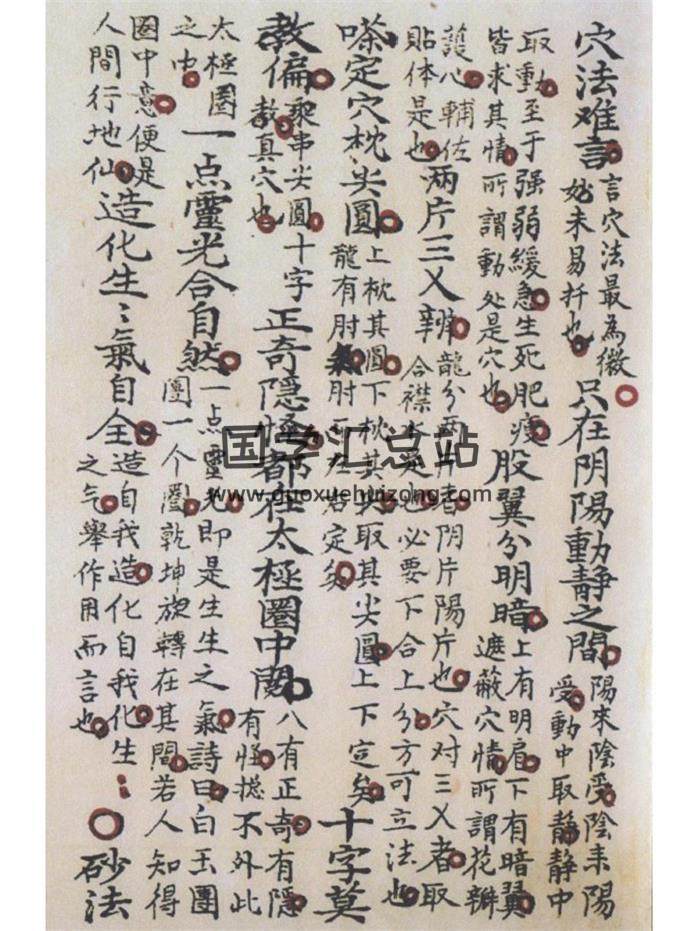 穴法难言
言穴法最為微
妙未易扦也
只在阴陽動静之間
陽来陰受陰来陽
受動中取静静中
取動至于强弱緩急生死肥瘦
皆求其情所謂動處是穴也
股翼分明暗
上有明肩下有暗翼
遮蔽穴情所謂花瓣
護心輔佐
貼体是也
两片三乂辨
龍分两片者阴片陽片也穴对三乂者取
合襟水是也必要下合上分方可立法也
定穴枕尖圓
上枕其圓下枕其尖取其尖圓上下定矣
龍有肘肘定矣
十字莫
教偏
串尖圓十字
教真穴也
正奇隐怪都在太極圈中
八有正奇有隱
有怪揔不外此
太極圈
之中
一点靈光合自然
一点靈光即是生生之氣詩曰白玉團
團一个圈乾坤旋轉在其間若人知得
圈中意便是
人間行地仙
造化生:氣自全
造自我造化自我化生
之气舉作用而言也
砂法
国学汇总站
www.guoxuehuizong.com